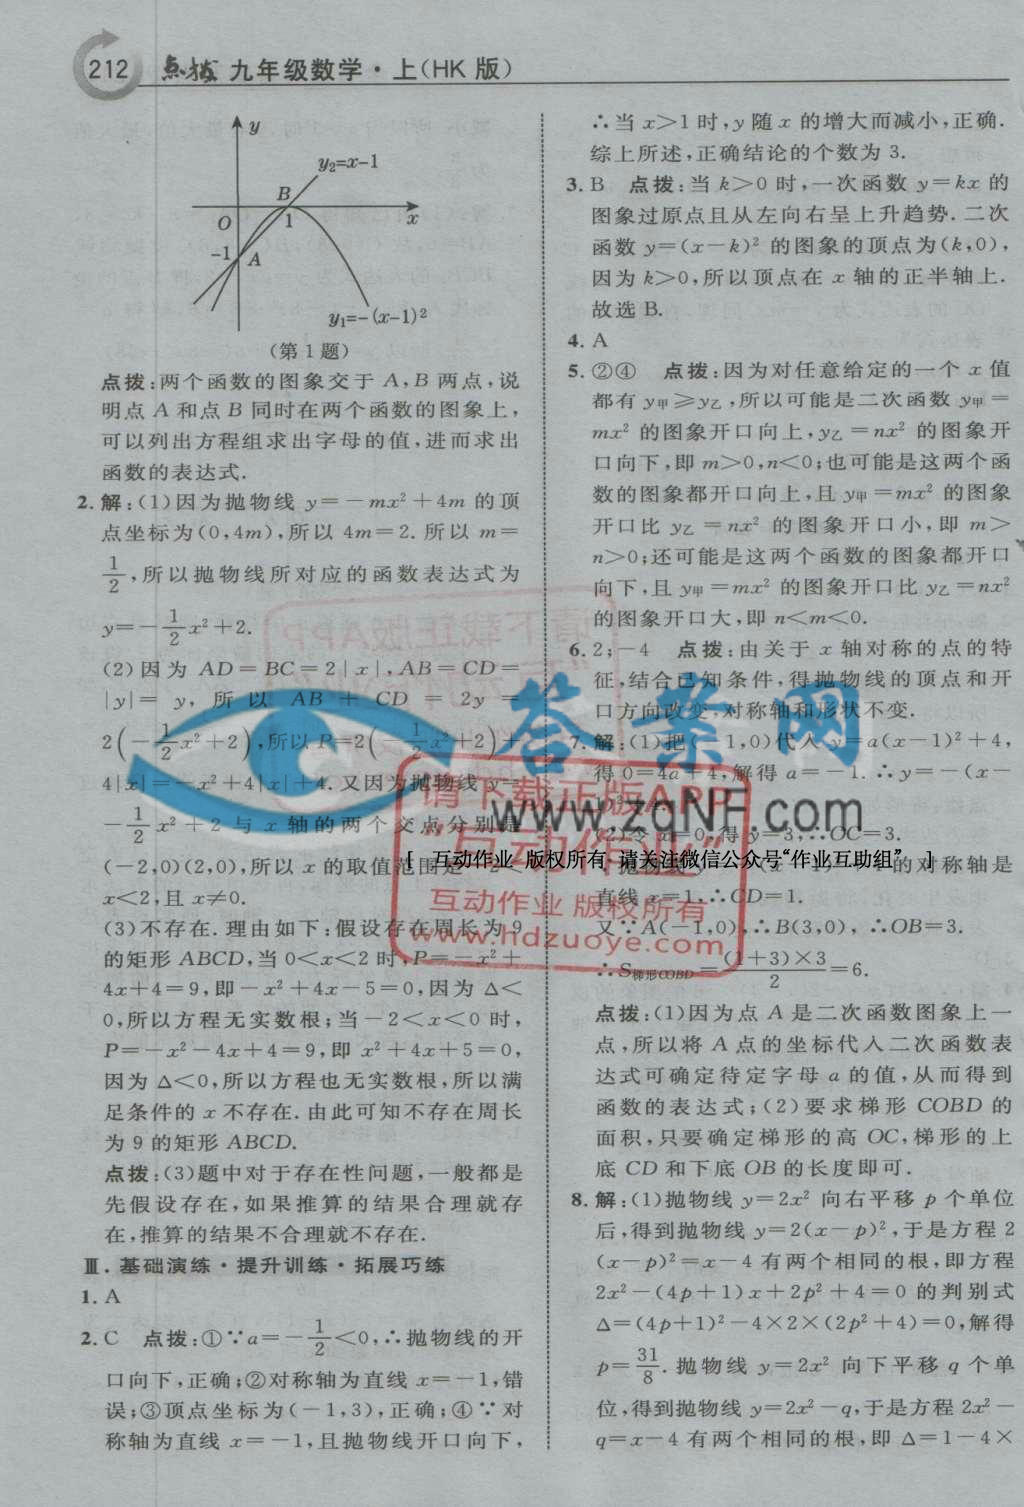 212 点拨 九年级数学·上(HK 版)
y
y₂=x-1
B
O 1 x
-1 A
y₁=-(x-1)²
(第 1 题)
点拨:两个函数的图象交于 A,B 两点,说
明点 A 和点 B 同时在两个函数的图象上,
可以列出方程组求出字母的值,进而求出
函数的表达式.
2. 解:(1)因为抛物线 y=-mx²+4m 的顶
点坐标为(0,4m),所以 4m=2. 所以 m=
1/2,所以抛物线所对应的函数表达式为
y=-1/2x²+2.
(2)因为 AD=BC=2|x|,AB=CD=
|y|= y, 所以 AB + CD = 2y =
2(-1/2x²+2),所以 P=2(-1/2x²+2)+
4|x|=-x²+4|x|+4. 又因为抛物线 y=
-1/2x²+2 与 x 轴的两个交点分别是
(-2,0)(2,0),所以 x 的取值范围是 -2<
x<2,且 x≠0.
(3)不存在. 理由如下:假设存在周长为 9
的矩形 ABCD,当 0<x<2 时,P=-x²+
4x+4=9,即-x²+4x-5=0,因为 Δ<
0,所以方程无实数根;当-2<x<0 时,
P=-x²-4x+4=9,即 x²+4x+5=0,
因为 Δ<0,所以方程也无实数根,所以满
足条件的 x 不存在. 由此可知不存在周长
为 9 的矩形 ABCD.
点拨:(3)题中对于存在性问题,一般都是
先假设存在,如果推算的结果合理就存
在,推算的结果不合理就不存在.
Ⅲ. 基础演练·提升训练·拓展巧练
1. A
2. C 点拨:①∵a=-1/2<0,∴抛物线的开
口向下,正确;②对称轴为直线 x=-1,错
误;③顶点坐标为(-1,3),正确;④∵对
称轴为直线 x=-1,且抛物线开口向下,
∴当 x>1 时,y 随 x 的增大而减小,正确.
综上所述,正确结论的个数为 3.
3. B 点拨:当 k>0 时,一次函数 y=kx 的
图象过原点且从左向右呈上升趋势. 二次
函数 y=(x-k)² 的图象的顶点为(k,0),
因为 k>0,所以顶点在 x 轴的正半轴上.
故选 B.
4. A
5. ②④ 点拨:因为对任意给定的一个 x 值
都有 y甲≥y乙,所以可能是二次函数 y甲=
mx² 的图象开口向上,y乙=nx² 的图象开
口向下,即 m>0,n<0;也可能是这两个函
数的图象都开口向上,且 y甲=mx² 的图象
开口比 y乙=nx² 的图象开口小,即 m>
n>0;还可能是这两个函数的图象都开口
向下,且 y甲=mx² 的图象开口比 y乙=nx²
的图象开口大,即 n<m<0.
6. 2;-4 点拨:由关于 x 轴对称的点的特
征,结合已知条件,得抛物线的顶点和开
口方向改变,对称轴和形状不变.
7. 解:(1)把(-1,0)代入 y=a(x-1)²+4,
得 0=4a+4,解得 a=-1. ∴y=-(x-
1)²+4.
(2)令 x=0,得 y=3,∴OC=3.
抛物线 y=-(x-1)²+4 的对称轴是
直线 x=1,∴CD=1.
又∵A(-1,0),∴B(3,0),∴OB=3.
∴S梯形COBD=(1+3)×3/2=6.
点拨:(1)因为点 A 是二次函数图象上一
点,所以将 A 点的坐标代入二次函数表
达式可确定待定字母 a 的值,从而得到
函数的表达式;(2)要求梯形 COBD 的
面积,只要确定梯形的高 OC,梯形的上
底 CD 和下底 OB 的长度即可.
8. 解:(1)抛物线 y=2x² 向右平移 p 个单位
后,得到抛物线 y=2(x-p)²,于是方程 2
(x-p)²=x-4 有两个相同的根,即方程
2x²-(4p+1)x+2p²+4=0 的判别式
Δ=(4p+1)²-4×2×(2p²+4)=0,解得
p=31/8. 抛物线 y=2x² 向下平移 q 个单
位,得到抛物线 y=2x²-q,于是方程 2x²-
q=x-4 有两个相同的根,即 Δ=1-4×
答案网
www.zqNF.com
请下载正版APP
"互动作业"
互动作业 版权所有
www.hdzuoye.com
[ 互动作业 版权所有 请关注微信公众号"作业互助组" ]